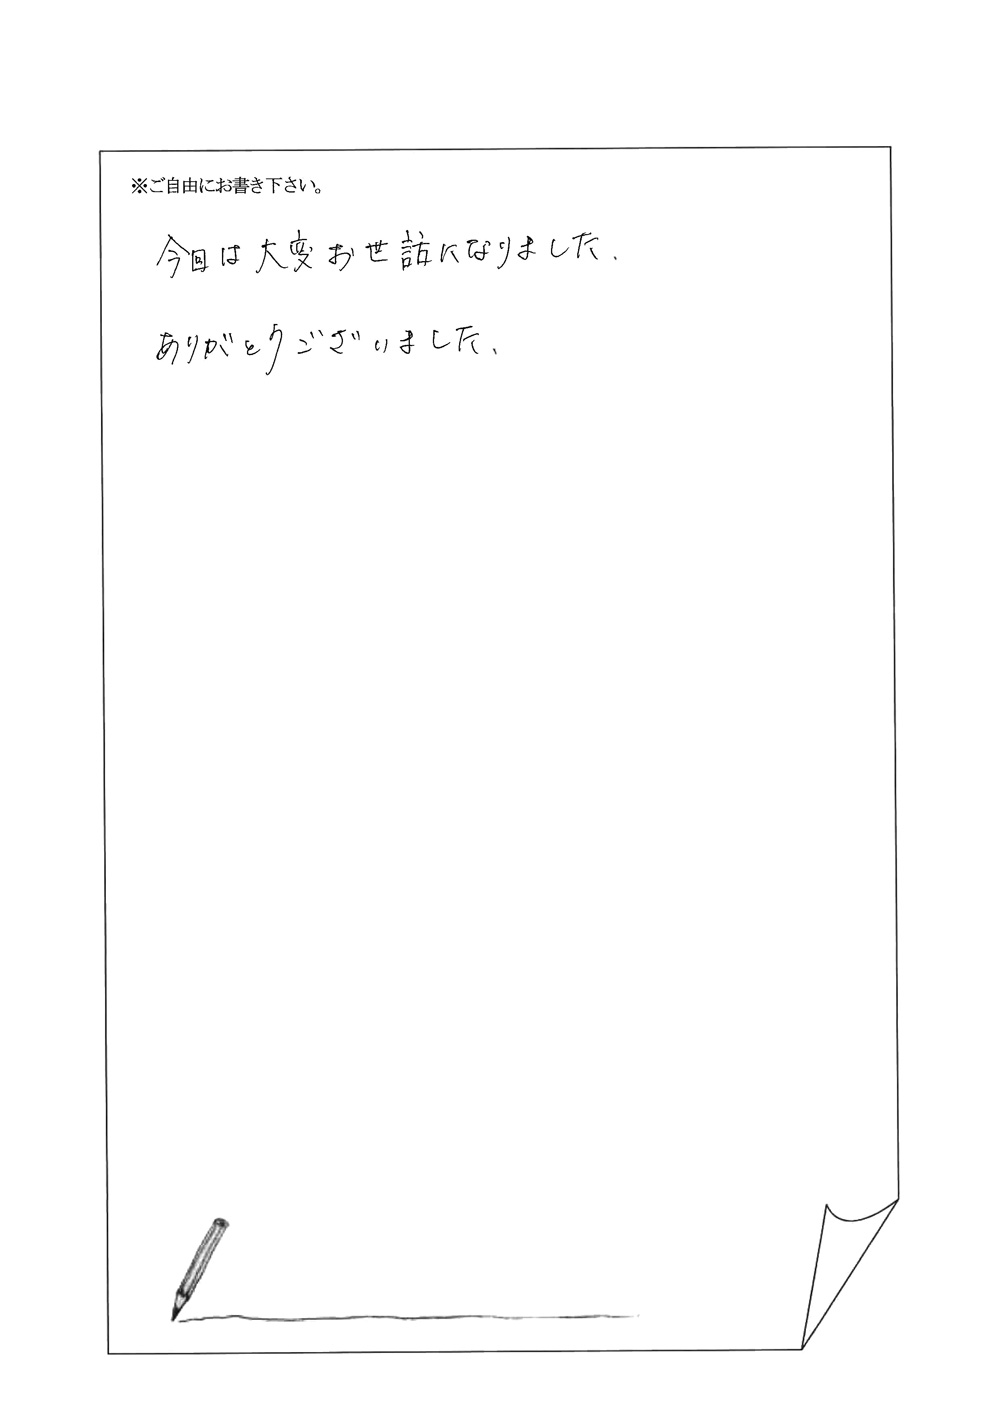 ※ご自由にお書き下さい。
今回は大変お世話になりました.
ありがとうございました、